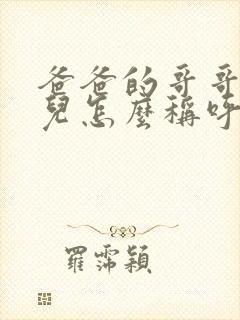 爸爸的哥哥
兒怎麼稱呼
羅霈穎